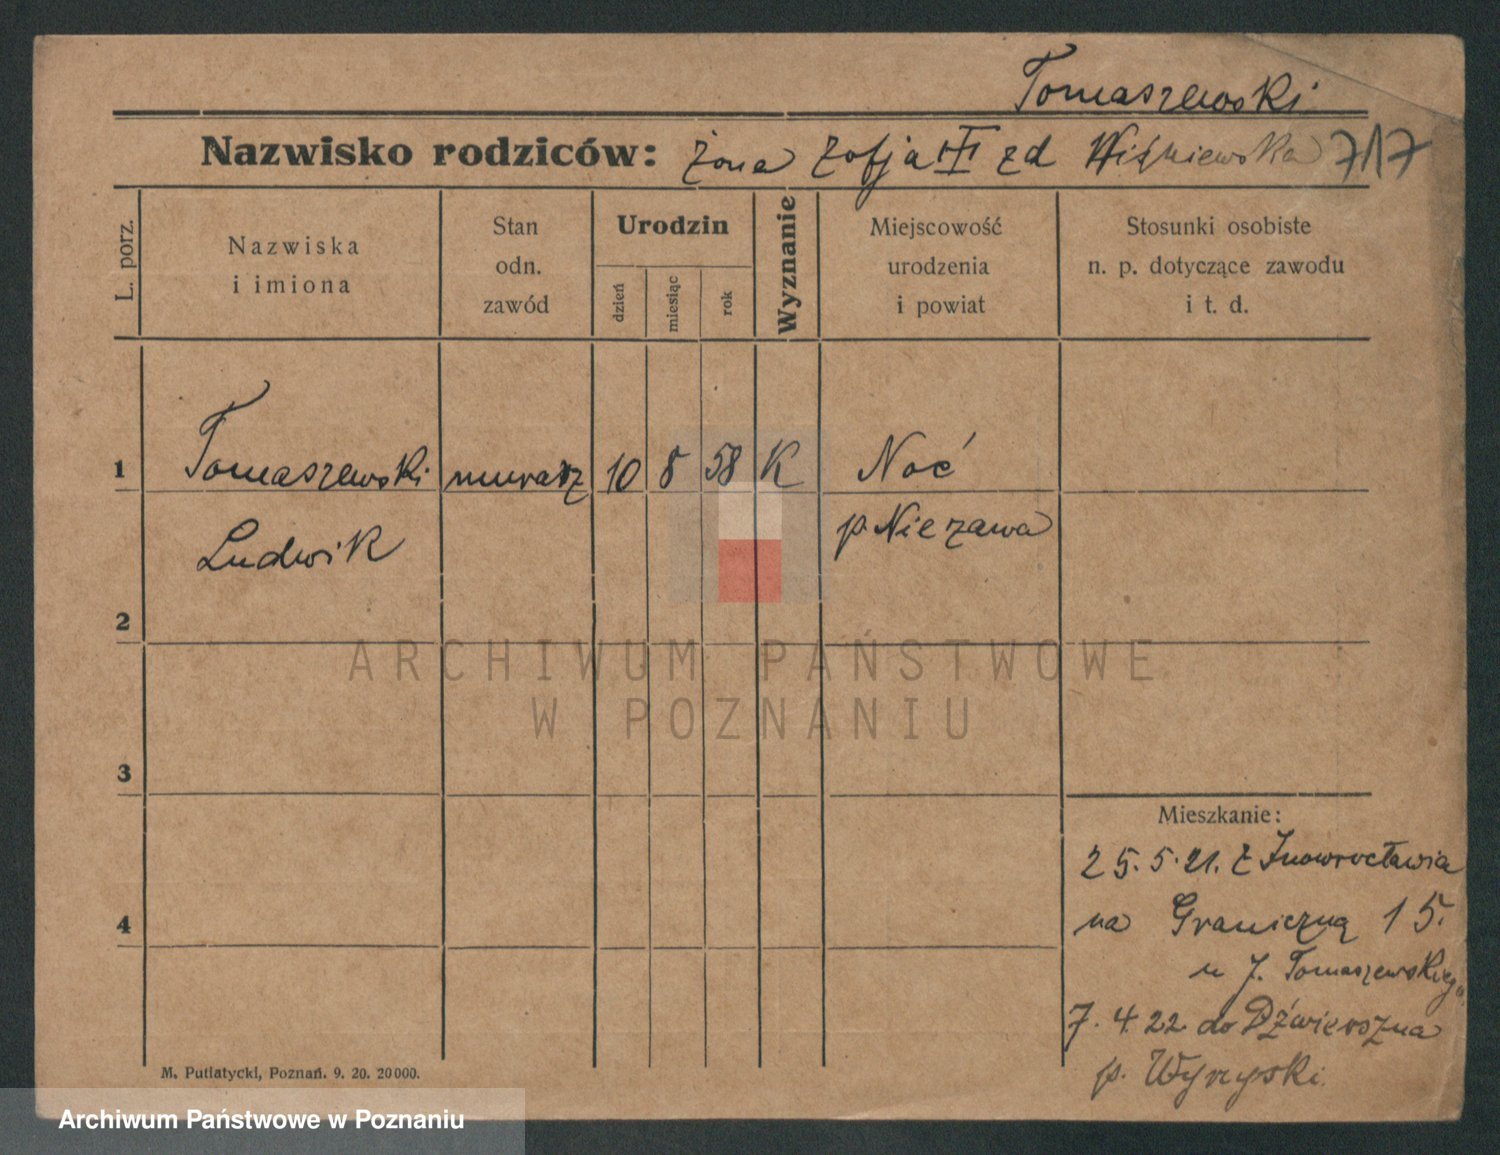 Tomaszewski
Nazwisko rodziców: żona Zofja III zd Wiśniewska 717
L. porz.
Nazwiska
i imiona
Stan
odn.
zawód
Urodzin
dzień
miesiąc
rok
Wyznanie
Miejscowość
urodzenia
i powiat
Stosunki osobiste
n. p. dotyczące zawodu
i t. d.
1 Tomaszewski murarz 10 8 58 K Noć
Ludwik p. Niezawa
2
3
4
Mieszkanie:
25.5.21. z Inowrocławia
na Graniczną 15.
u J. Tomaszewskiego
7.4.22 do Dźwierszna
p. Wyrzyski.
M. Putiatycki, Poznań. 9. 20. 20000.
ARCHIWUM PAŃSTWOWE
W POZNANIU
Archiwum Państwowe w Poznaniu